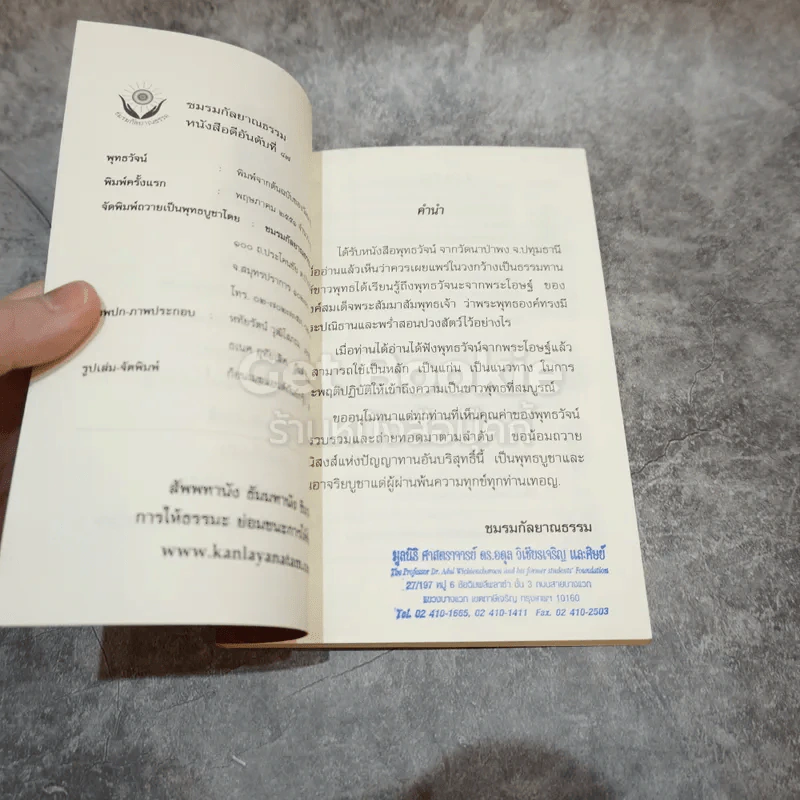 ชมรมกัลยาณธรรม
ชมรมกัลยาณธรรม
หนังสือดีอันดับที่
พุทธวัจน์ : พิมพ์จากต้นฉบับของวัดนา
พิมพ์ครั้งแรก : พฤษภาคม ๒๕๕๑
จัดพิมพ์ถวายเป็นพุทธบูชาโดย : ชมรมกัลยาณธรรม
๑๐๐ ถ.ประโคนชัย
จ.สมุทรปราการ
โทร.
ภาพปก-ภาพประกอบ : หทัยรัตน์
รูปเล่ม-จัดพิมพ์ :
สัพพทานัง ธัมมทานัง
การให้ธรรมะ ย่อมชนะการให้
www.kanlayanatam.
คำนำ
ได้รับหนังสือพุทธวัจน์ จากวัดนาป่าพง จ.ปทุมธานี
อ่านแล้วเห็นว่าควรเผยแพร่ในวงกว้างเป็นธรรมทาน
ชาวพุทธได้เรียนรู้ถึงพุทธวัจนะจากพระโอษฐ์ ของ
องค์สมเด็จพระสัมมาสัมพุทธเจ้า ว่าพระพุทธองค์ทรงมี
ปณิธานและพร่ำสอนปวงสัตว์ไว้อย่างไร
เมื่อท่านได้อ่านได้ฟังพุทธวัจน์จากพระโอษฐ์แล้ว
สามารถใช้เป็นหลัก เป็นแก่น เป็นแนวทาง ในการ
ประพฤติปฏิบัติให้เข้าถึงความเป็นชาวพุทธที่สมบูรณ์
ขออนุโมทนาแด่ทุกท่านที่เห็นคุณค่าของพุทธวัจน์
รวบรวมและถ่ายทอดมาตามลำดับ ขอน้อมถวาย
อานิสงส์แห่งปัญญาทานอันบริสุทธิ์นี้ เป็นพุทธบูชาและ
อาจริยบูชาแด่ผู้ผ่านพ้นความทุกข์ทุกท่านเทอญ.
ชมรมกัลยาณธรรม
มูลนิธิ ศาสตราจารย์ ดร.อดุล วิเชียรเจริญ และศิษย์
The Professor Dr. Adul Wichiencharoen and his former students' Foundation
27/197 หมู่ 6 ชั้น 3 ถนนสายบางแวก
แขวงบางแวก เขตภาษีเจริญ กรุงเทพฯ 10160
Tel. 02 410-1665, 02 410-1411 Fax. 02 410-2503
Get Bookie
ร้านหนังสือบุ๊คกี้